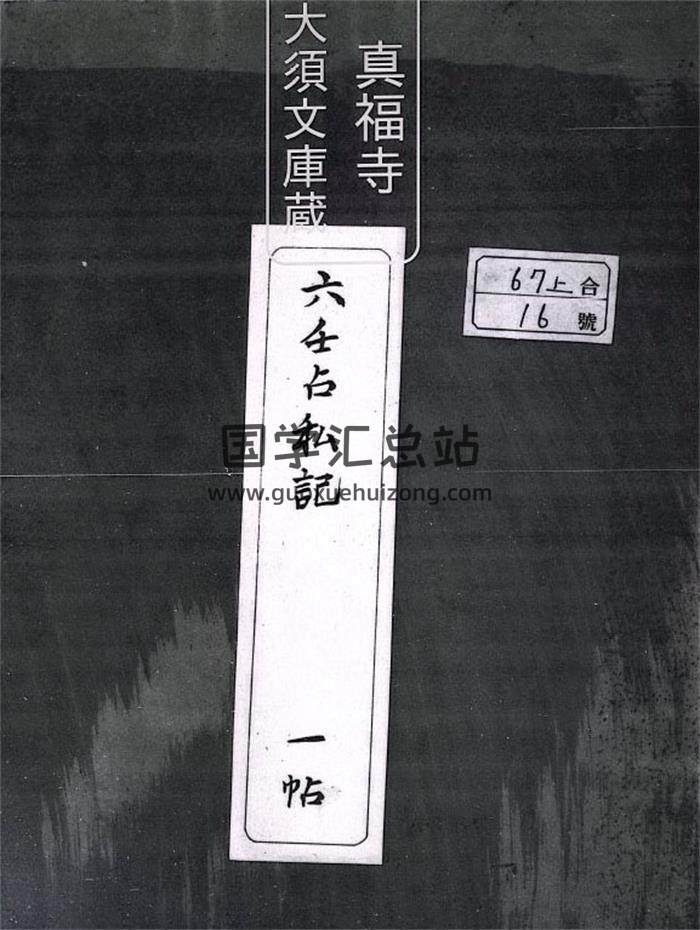 真福寺
大須文庫蔵
67上合
16 號
六壬占私記
一帖
国学汇总站
www.guoxuehuizong.com